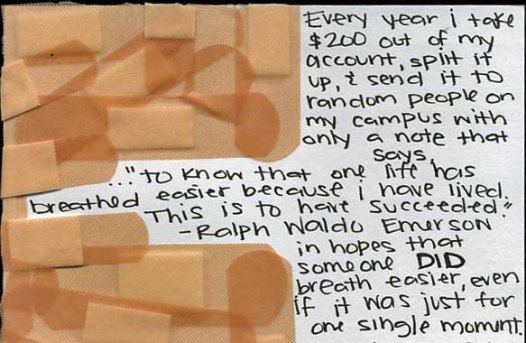 Every year i take
$200 out of my
account, split it
up, & send it to
random people on
my campus with
only a note that
says,
..."to know that one life has
breathed easier because i have lived.
This is to have succeeded."
-Ralph Waldo Emerson
in hopes that
someone DID
breath easier, even
if it was just for
one single moment.